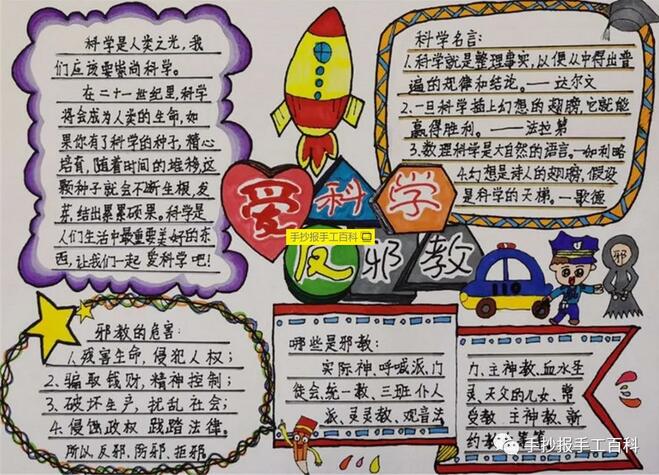 科学是人类之光,我
们应该要崇尚科学。
在二十一世纪里,科学
将会成为人类的生命,如
果你有了科学的种子,精心
培育,随着时间的推移,这
颗种子就会不断生根、发
芽、结出累累硕果。科学是
人们生活中最重要美好的东
西,让我们一起爱科学吧!
科学名言:
1.科学就是整理事实,以便从中得出普
遍的规律和结论。——达尔文
2.一旦科学插上幻想的翅膀,它就能
赢得胜利。——法拉第
3.数理科学是大自然的语言。—伽利略
4.幻想是诗人的翅膀,假设
是科学的天梯。—歌德
爱科学
手抄报手工百科
反邪教
邪
邪教的危害:
1.残害生命,侵犯人权;
2.骗取钱财,精神控制;
3.破坏生产,扰乱社会;
4.侵蚀政权 践踏法律。
所以反邪、防邪、拒邪。
哪些是邪教:
实际神、呼喊派、门
徒会、统一教、三班仆人
派、灵灵教、观音法
力、主神教、血水圣
灵、天父的儿女、常
受教 主神教、新
约教
手抄报手工百科